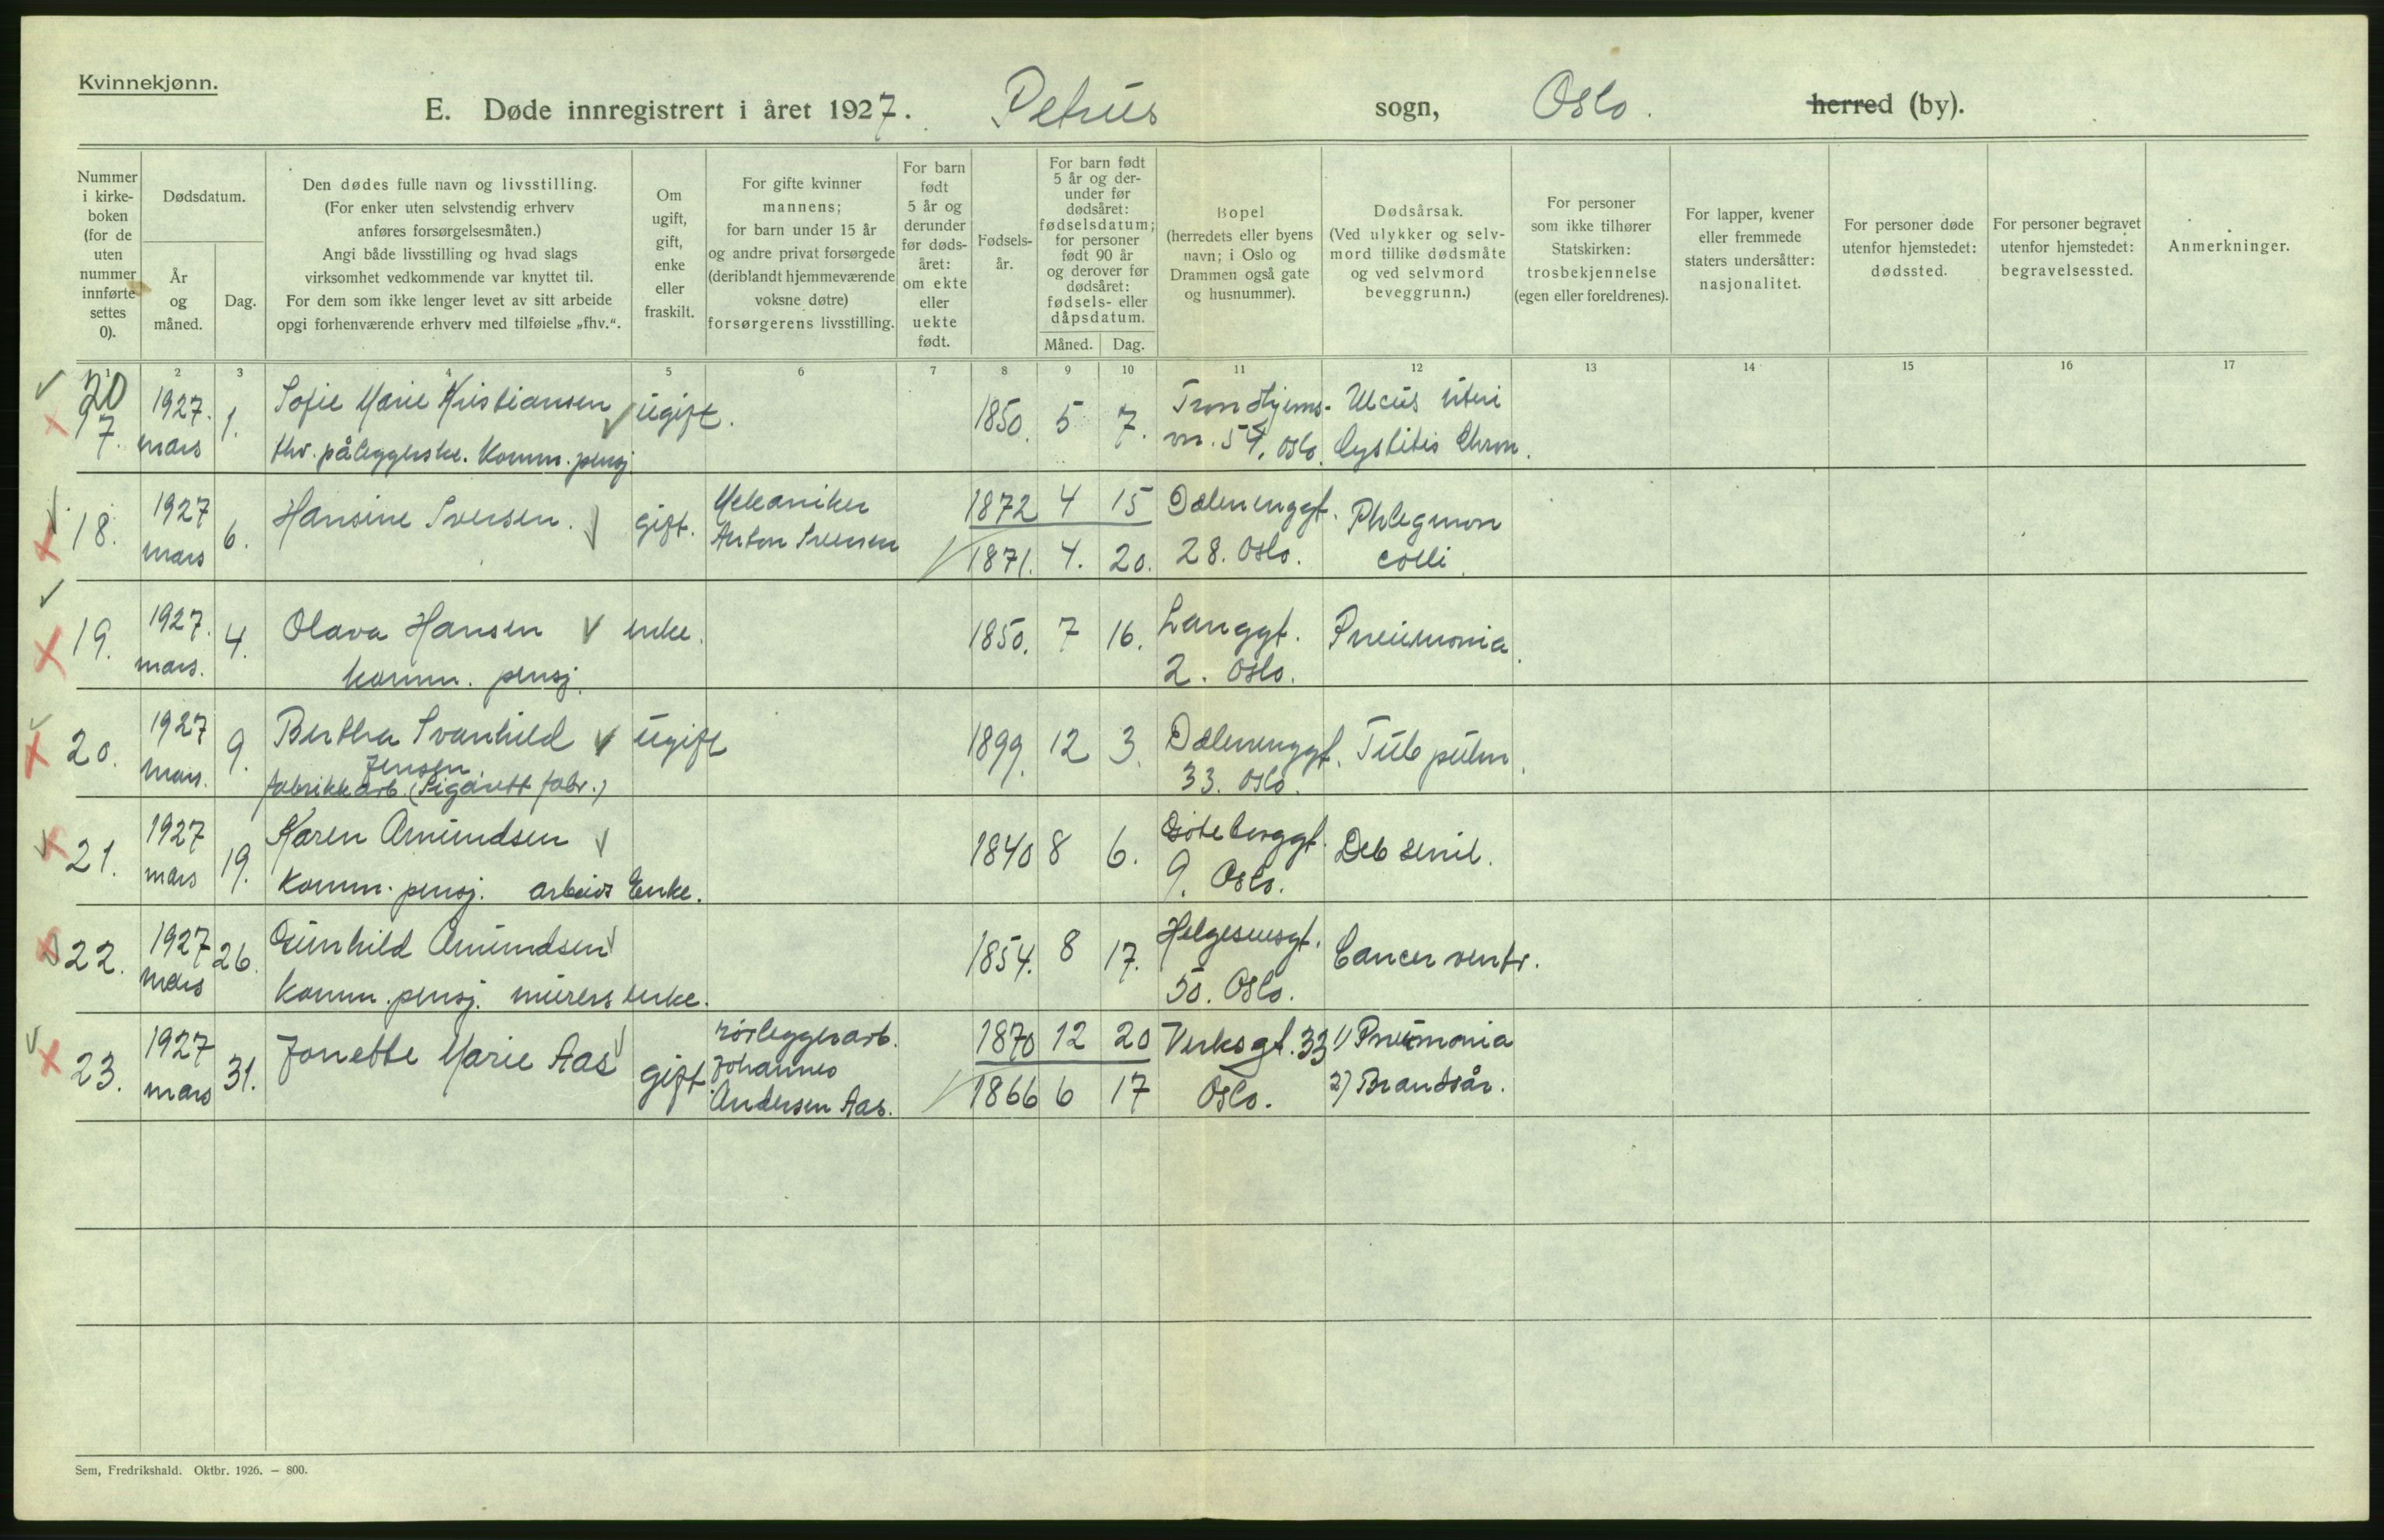 Kvinnekjønn.
E. Døde innregistrert i året 1927. Petrus sogn, Oslo. herred (by).
Nummer i kirkeboken (for de uten nummer innførte settes 0).
Dødsdatum.
År og måned.
Dag.
Den dødes fulle navn og livsstilling.
(For enker uten selvstendig erhverv
anføres forsørgelsesmåten.)
Angi både livsstilling og hvad slags
virksomhet vedkommende var knyttet til.
For dem som ikke lenger levet av sitt arbeide
opgi forhenværende erhverv med tilføielse „fhv.“.
Om
ugift,
gift,
enke
eller
fraskilt.
For gifte kvinner
mannens;
for barn under 15 år
og andre privat forsørgede
(deriblandt hjemmeværende
voksne døtre)
forsørgerens livsstilling.
For barn
født
5 år og
derunder
før døds-
året:
om ekte
eller
uekte
født.
Fødsels-
år.
For barn født
5 år og der-
under før
dødsåret:
fødselsdatum;
for personer
født 90 år
og derover før
dødsåret:
fødsels- eller
dåpsdatum.
Måned. Dag.
Bopel
(herredets eller byens
navn; i Oslo og
Drammen også gate
og husnummer).
Dødsårsak.
(Ved ulykker og selv-
mord tillike dødsmåte
og ved selvmord
beveggrunn.)
For personer
som ikke tilhører
Statskirken:
trosbekjennelse
(egen eller foreldrenes).
For lapper, kvener
eller fremmede
staters undersåtter:
nasjonalitet.
For personer døde
utenfor hjemstedet:
dødssted.
For personer begravet
utenfor hjemstedet:
begravelsessted.
Anmerkninger.
1 2 3 4 5 6 7 8 9 10 11 12 13 14 15 16 17
20
17. 1927. mars 1. Sofie Marie Kristiansen ugift. 1850. 5 7. Trondhjems- Ulcus uteri
fhv. påleggerske. Komm. pensj vn. 54, Oslo. Cystitis Chron.
18. 1927 mars 6. Hansine Iversen. gift. Mekaniker 1872 4 15 Dælenenggt. Phlegmon
Anton Iversen 1871. 4. 20. 28. Oslo. colli.
19. 1927. mars. 4. Olava Hansen enke. 1850. 7 16. Langgt. Pneumonia.
komm. pensj. 2. Oslo.
20. 1927 mars. 9. Bertha Svanhild ugift 1899. 12 3. Dælenenggt. Tub pulm.
Jensen
fabrikkarb. (Sigarett fabr.) 33. Oslo.
21. 1927 mars 19. Karen Amundsen 1840 8 6. Göteborggt. Deb senil.
Komm. pensj. arbeids Enke. 9. Oslo.
22. 1927 mars 26. Gunhild Amundsen 1854. 8 17. Helgesensgt. Cancer ventr.
Komm. pensj. murers enke. 50. Oslo.
23. 1927 mars 31. Jonette Marie Aas gift. rørleggerarb. 1870 12 20 Verksgt. 33 1) Pneumonia
Johannes
Andersen Aas. 1866 6 17 Oslo. 2) Brandsår.
Sem, Fredrikshald. Oktbr. 1926. — 800.